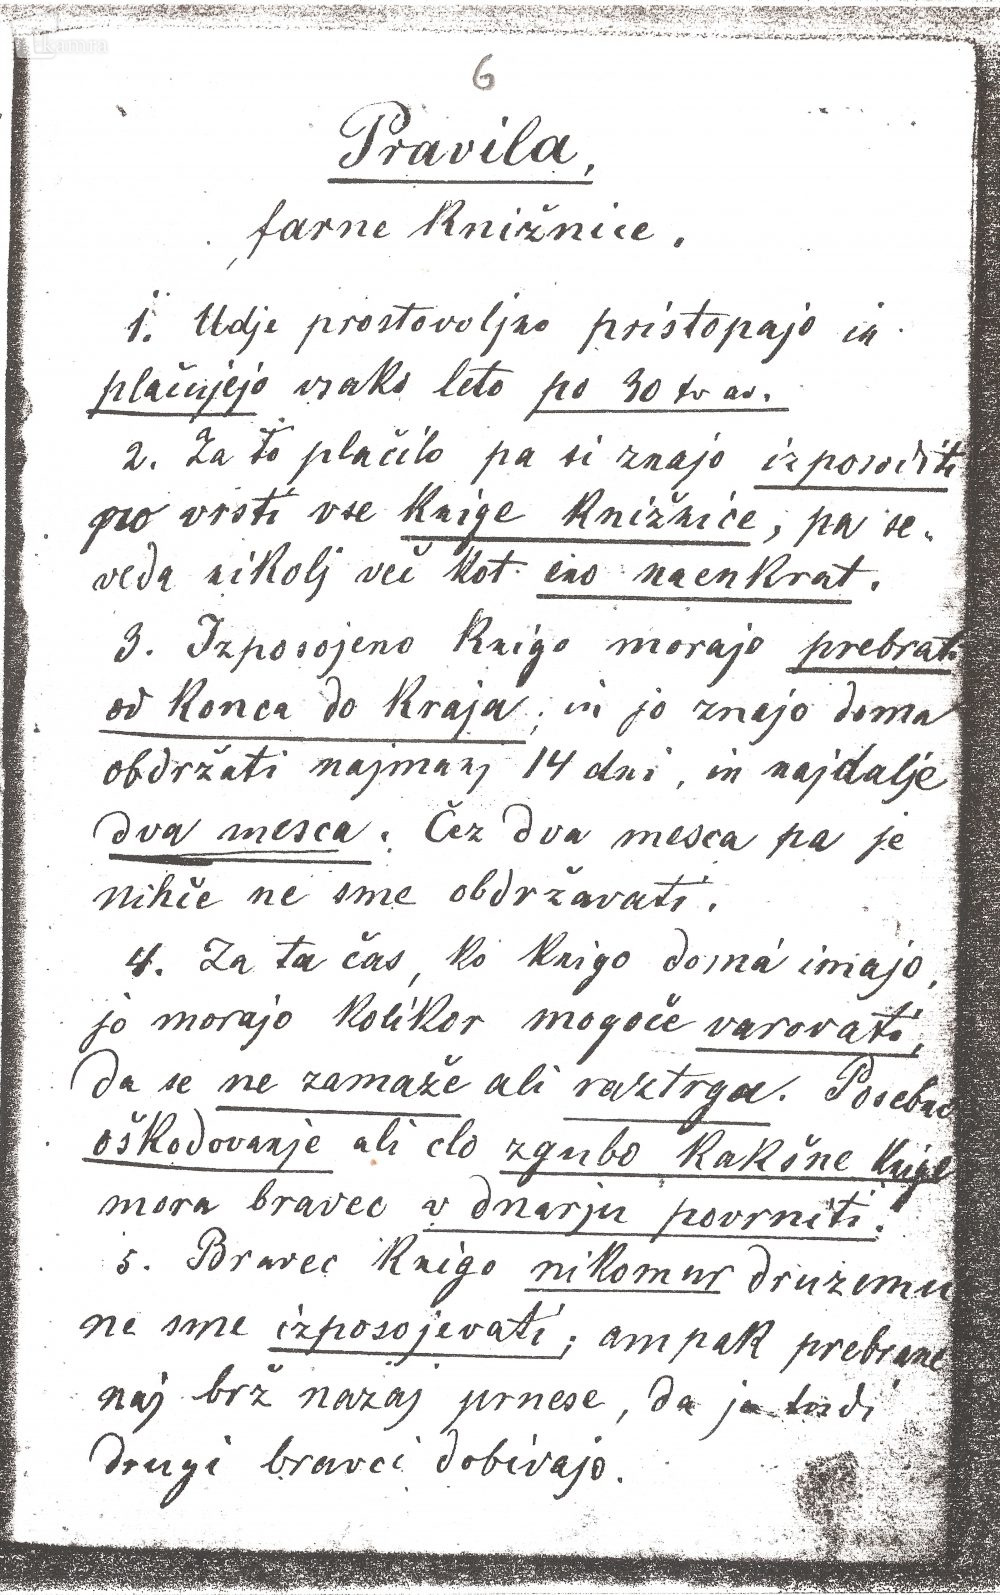 kamra
6
Pravila,
farne knižnice.
1. Udje prostovoljno pristopajo in
plačujejo vsako leto po 30
2. Za to plačilo pa si znajo izposoditi
po vrsti vse knige knižnice, pa se-
veda nikolj več kot eno naenkrat.
3. Izposojeno knigo morajo prebrati
od konca do kraja, in jo znajo doma
obdržati najmanj 14 dni, in najdalje
dva mesca. Čez dva mesca pa je
nihče ne sme obdržavati.
4. Za ta čas, ko knigo domá imajo,
jo morajo kolikor mogoče varovati,
da se ne zamaže ali raztrga. Posebno
oškodovanje ali clo zgubo kakšne knige
mora bravec v dnarju povrniti.
5. Bravec knigo nikomur druzemu
ne sme izposojevati; ampak prebrano
naj brž nazaj prnese, da jo tudi
drugi bravci dobivajo.